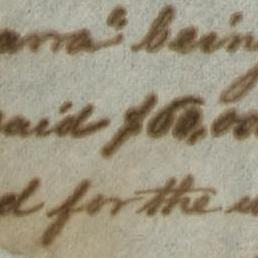 arra" being
paid $60,00
d for the u